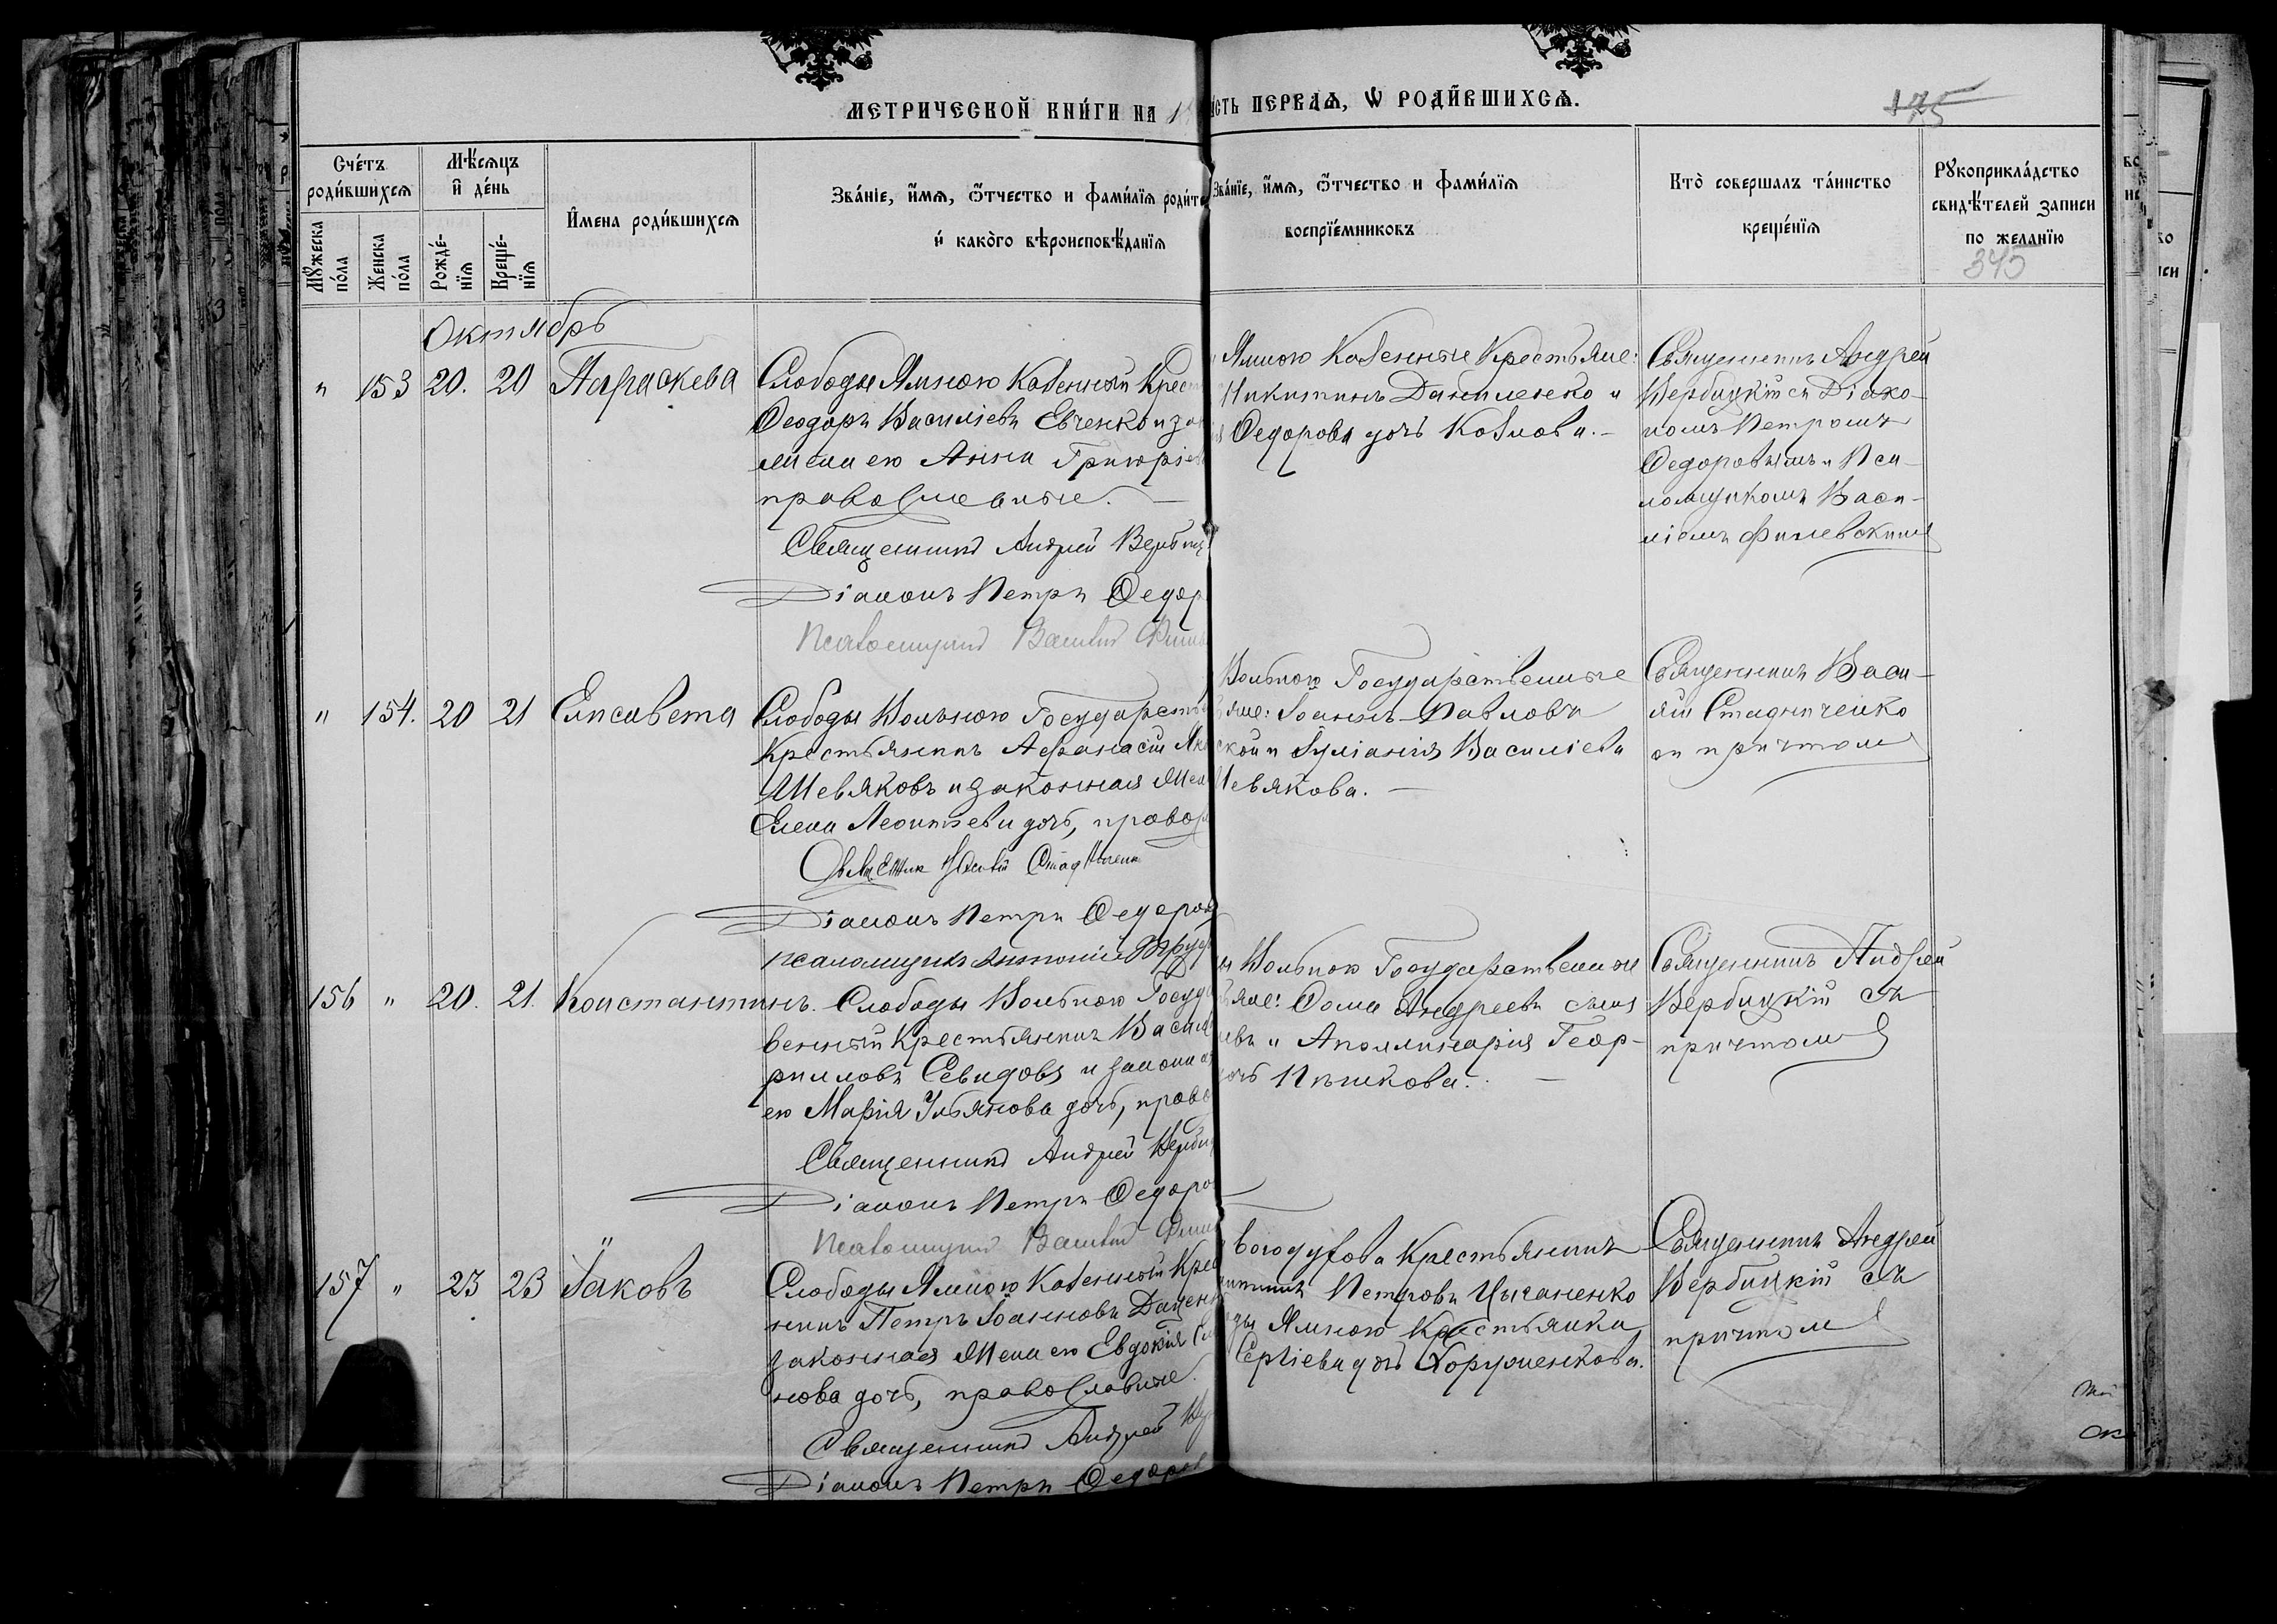 МЕТРИЧЕСКОЙ КНИ́ГИ НА 1
СТЬ ПЕРВАѦ, Ѡ РОДИ́ВШИХСѦ.
175
Сче́тъ роди́вшихсѧ
Мꙋжеска по́ла
Женска по́ла
Мѣ́сѧцъ и҆ де́нь
Рожде́нїѧ
Креще́нїѧ
И҆мена роди́вшихсѧ
Зва́нїе, и҆́мѧ, ѻ҆́тчество и фами́лїѧ роди́т
и҆ како́го вѣроисповѣ́данїѧ
Зва́нїе, и҆́мѧ, ѻ҆́тчество и фами́лїѧ
воспрїе́мниковъ
Кто̀ соверша́лъ та́инство
креще́нїѧ
Рꙋкоприкла́дство
свидѣ́телей записи
по жела́нїю
345
Октябрь
" 153 20. 20 Параскева
Слободы Ямною Казенный Крес
Ѳеодоръ Васильевъ Евченко и за
жена его Анна Григорьев
православные.
Священникъ Андрей Вербиц
Діаконъ Петръ Ѳедор
Псаломщикъ Василій Филев
Ямною Казенные Крестьяне:
Никитинъ Даниленко и
Ѳедорова дочь Козлова.
Священникъ Андрей
Вербицкій съ Діако-
номъ Петромъ
Ѳедоровымъ и Пса-
ломщикомъ Васи-
ліемъ Филевскимъ
" 154. 20 21 Елисавета
Слободы Вольною Государств
Крестьянинъ Аѳанасій Як
Шевяковъ и законная жен
Елена Леонтьева дочь, правосл
Священник Василій Стадниченк
Діаконъ Петръ Ѳедоров
Псаломщикъ Антоній Труф
Вольною Государственные
яне: Іоаннъ Павловъ
ской и Іуліанія Василіева
Шевякова.
Священникъ Васи-
лій Стадниченко
съ причтомъ
156 " 20. 21. Константинъ.
Слободы Вольною Госуд
венный Крестьянинъ Васил
рилловъ Севидовъ и законна
его Марія Ульянова дочь, право
Священникъ Андрей Верби
Діаконъ Петръ Ѳедоро
Псаломщикъ Василій Филе
Вольною Государственные
яне: Ѳома Андреевъ сынъ
евъ и Аполлинарія Геор-
дочь Пѣшкова.
Священникъ Андрей
Вербицкій съ
причтомъ
157 " 23 23 Іаковъ
Слободы Ямною Казенный Крес
нинъ Петръ Іоанновъ Даценк
законная жена его Евдокія Си
нова дочь, православные.
Священникъ Андрей Ве
Діаконъ Петръ Ѳедоров
Богодухова Крестьянинъ
Петровъ Цыганенко
ды Ямною Крестьянка
Сергіева дочь Хоруженкова.
Священникъ Андрей
Вербицкій съ
причтомъ